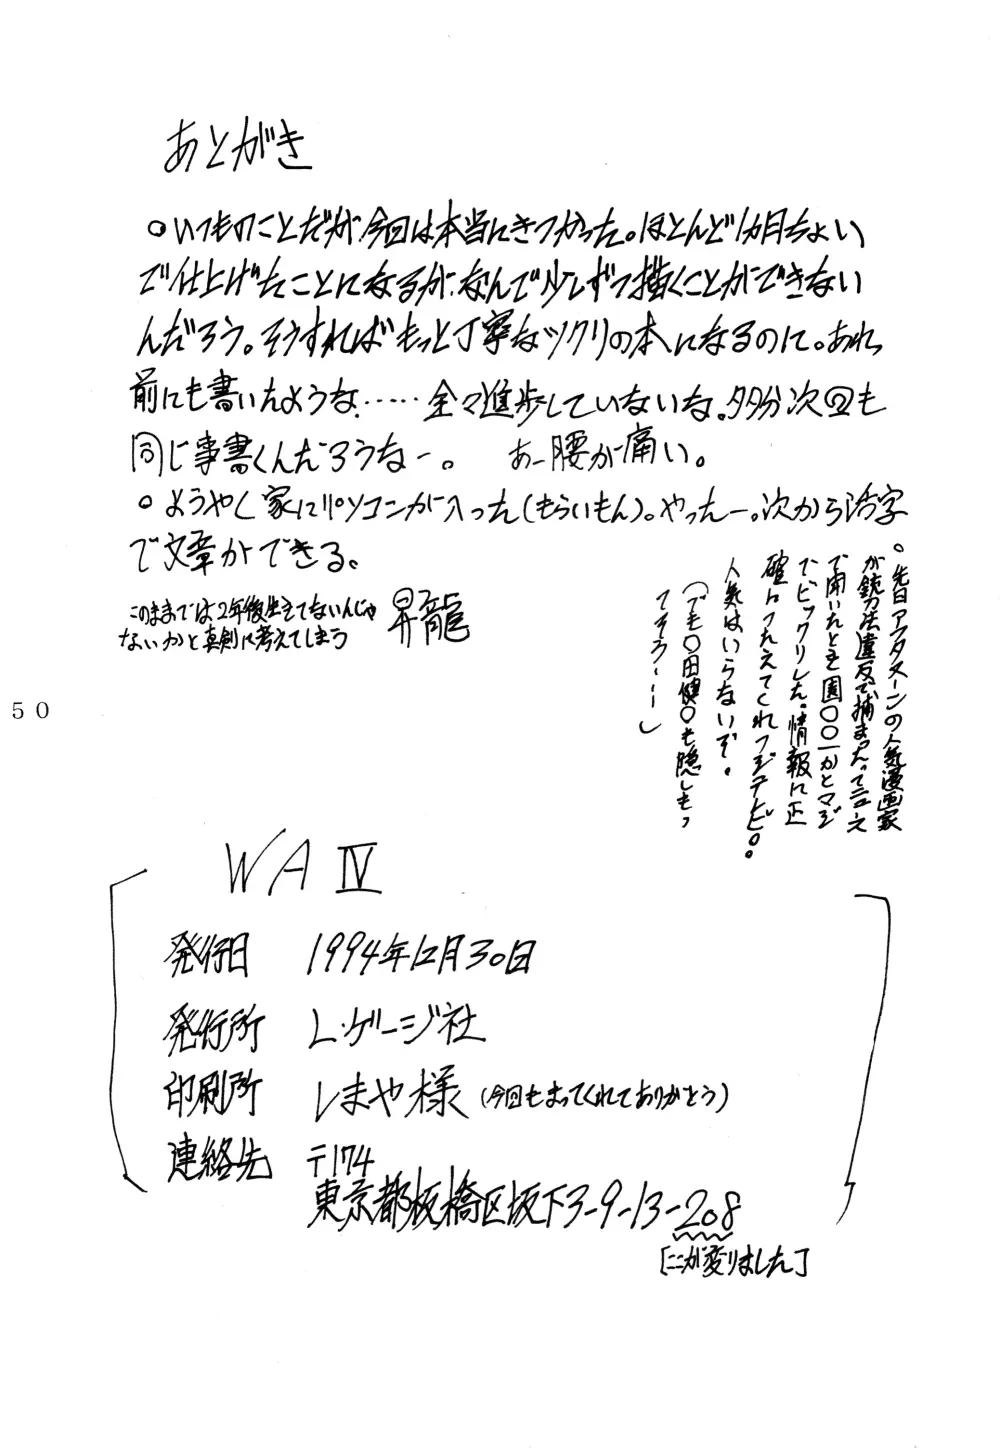 あとがき
○いつものことだが今回は本当にきつかった。ほとんど1カ月ちょい
で仕上げたことになるが、なんで少しずつ描くことができない
んだろう。そうすればもっと丁寧なツクリの本になるのに。あれ
前にも書いたような……全々進歩していないな。多分次回も
同じ事書くんだろうなー。 あー腰が痛い。
○ようやく家にパソコンが入った(もらいもん)。やったー。次から活字
で文章ができる。
このままでは2年後生きてないんじゃ
ないかと真剣に考えてしまう
昇龍
○先日アフタヌーンの人気漫画家
が銃刀法違反で捕まったってニュース
で聞いたとき園○○一かとマジ
でビックリした。情報は正
確につたえてくれフジテレビ。
人気はいらないぞ。
(でも○田健○も隠しもっ
てそうーー)
50
WA Ⅳ
発行日 1994年12月30日
発行所 L・ゲージ社
印刷所 しまや様(今回もまってくれてありがとう)
連絡先 〒174
東京都板橋区坂下3-9-13-208
「ここが変りました」